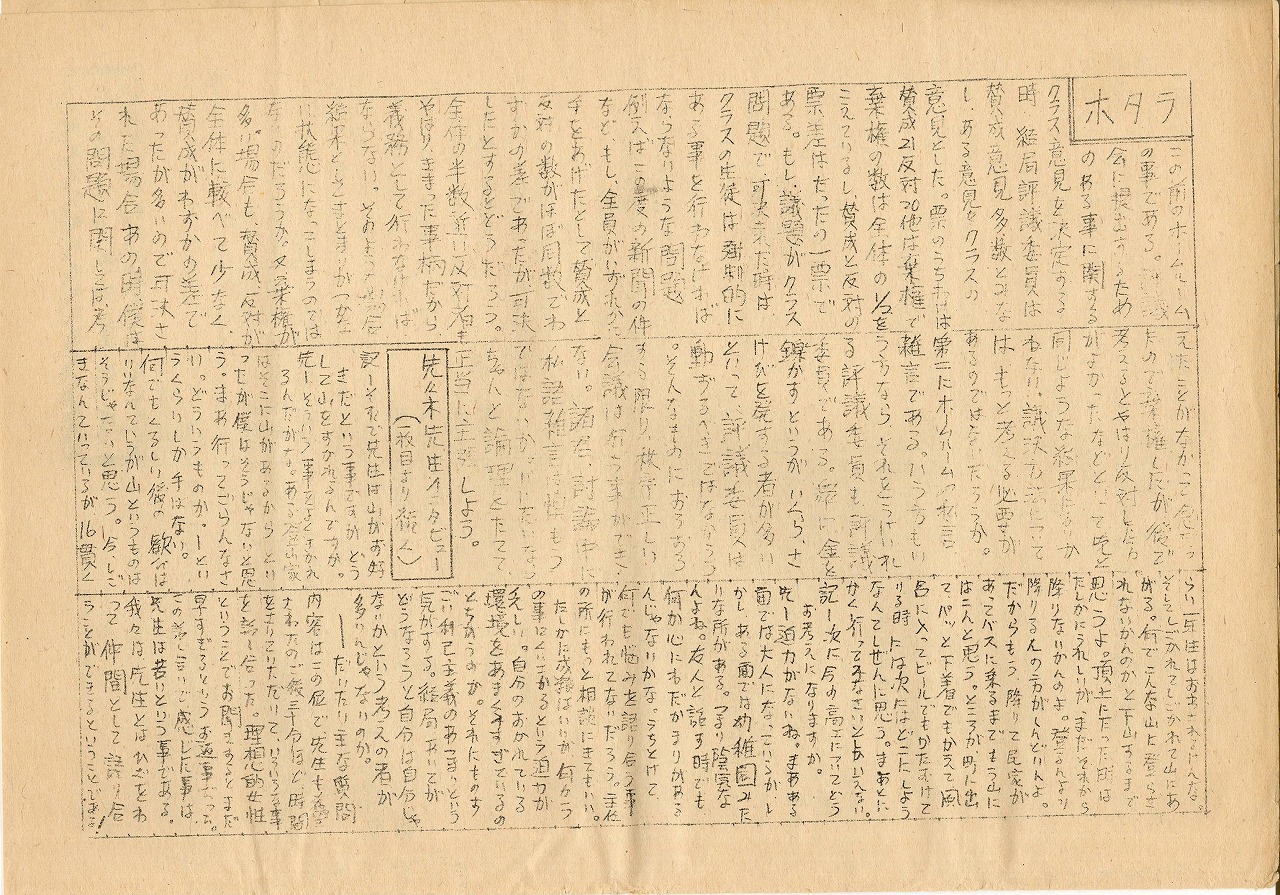 ホタラ
この前のホームルーム
の事である。
会に提出するため
のある事に関する
クラス意見を決定する
時、結局評議委員は
賛成意見多数とみな
し、ある意見をクラスの
意見とした。票のうちわは
賛成21反対20他は棄権で
棄権の数は全体の1/3を
こえているし賛成と反対の
票差はたったの一票で
ある。もし、議題がクラス
問題で可決された時は、
クラスの生徒は強制的に
ある事を行わなければ
ならないような問題
例えば今度の新聞の件
などもし、全員がいずれかに
手をあげたとして賛成と
反対の数がほぼ同数でわ
ずかの差であったが可決
したとするとどうだろう。
全体の半数近い反対者も
やはりきまった事柄だから
義務として行わなければ
ならない。そのような場合
結果としてまとまりがつかな
い状態になってしまうのでは
ないのだろうか。又棄権が
多い場合も、賛成、反対が
全体に較べて少なく、
賛成がわずかの差で
あったが多いので可決さ
れた場合あの時僕は
その問題に関しては考
えたことがなかって
たので棄権したが後で
考えるとやはり反対したら
がよかったなどといって
同じような結果になりか
ねない。議決方法につて
はもっと考える必要が
あるのではないだろうか。
第一にホームルームの私言
雑言である。いう方もい
うなら それをうけいれ
る評議委員も評議
委員である。
録がするというが いくら、さ
けびを発する者が多い
といって、評議委員は
動ずるべきではなかろう
。そんなものにおうずる
する限り、秩序正しい
会議は行う事ができ
ない。諸君、討議中に
私語雑言は慎もう
ではないか。いいたいなら
ちゃんと論理をたてて
正当に主張しよう。
先公木先生インタビュー
(一枚目より続く)
記ーそれで先生は山がお好
きだという事ですが どう
して山をすかれるんですか。
先ーそういう事をよくきかれ
るんだがな。ある登山家
はそこに山があるから とい
ったが僕はそうじゃないと思
う。まあ行ってごらんなさ
い。どういうものか。ーとい
うくらいしか手はない。
何でもくるしい後の 歓びは
いいなんていうが山というものは
そうじゃないと思う。今しご
きなんていっているが16貫く
らい一年生はおわされるんな。
そしてしごかれてしごかれて山にあ
がる。何でこんな山に登らさ
れないかんのかと下山するまで
思うよ。頂上にたった時は
たしかにうれしいがまだそれから
降りないかんのよ。登るんより
降りるんの方がしんどいんよ。
だからもう、降りて民家が
あってバスに乗るまでもう山に
はこんと思う。ところが町に出
て、パッと下着でもかえて風
呂に入ってビールでもかたむけて
いる時には次にはどこにしよう
なんてしせんに思う。まあとに
かく行ってみなさいとしかいえない。
記ー次に今の高工についてどう
お考えになりますか。
先ー迫力がないね。まあある
面では大人になっているがし
かし、ある面では幼稚園みた
いな所がある。つまり陰気な
んよね。友人と話す時でも
何か心にわだかまりがある
んじゃないかな。うちとけて
何でも悩みを語り合う事
が行われてないだろう。主任
の所にもっと相談にきてもいい。
たしかに成績はいいが何か一つ
の事にくいさがるという迫力が
乏しい。自分のおかれている
環境をあまくみすぎているの
とちがうのか。それにものす
ごい利己主義のあつまりという
気がする。結局、あいてが
どうなろうと自分は自分じゃ
ないかという考えの者が
多いんじゃないのか。
ーだいたい主な質問
内容はこの位で先生も
なれたのご後三十分ほど時間
をさいていただいていろいろな事
を話し合った。理想的女性
ということでお聞きするとまだ
早すぎるというお返事だった。
この話し合いで感じた事は
先生は若いという事である。
我々は先生とはひざをわ
って仲間として語り合
うことができるということである!